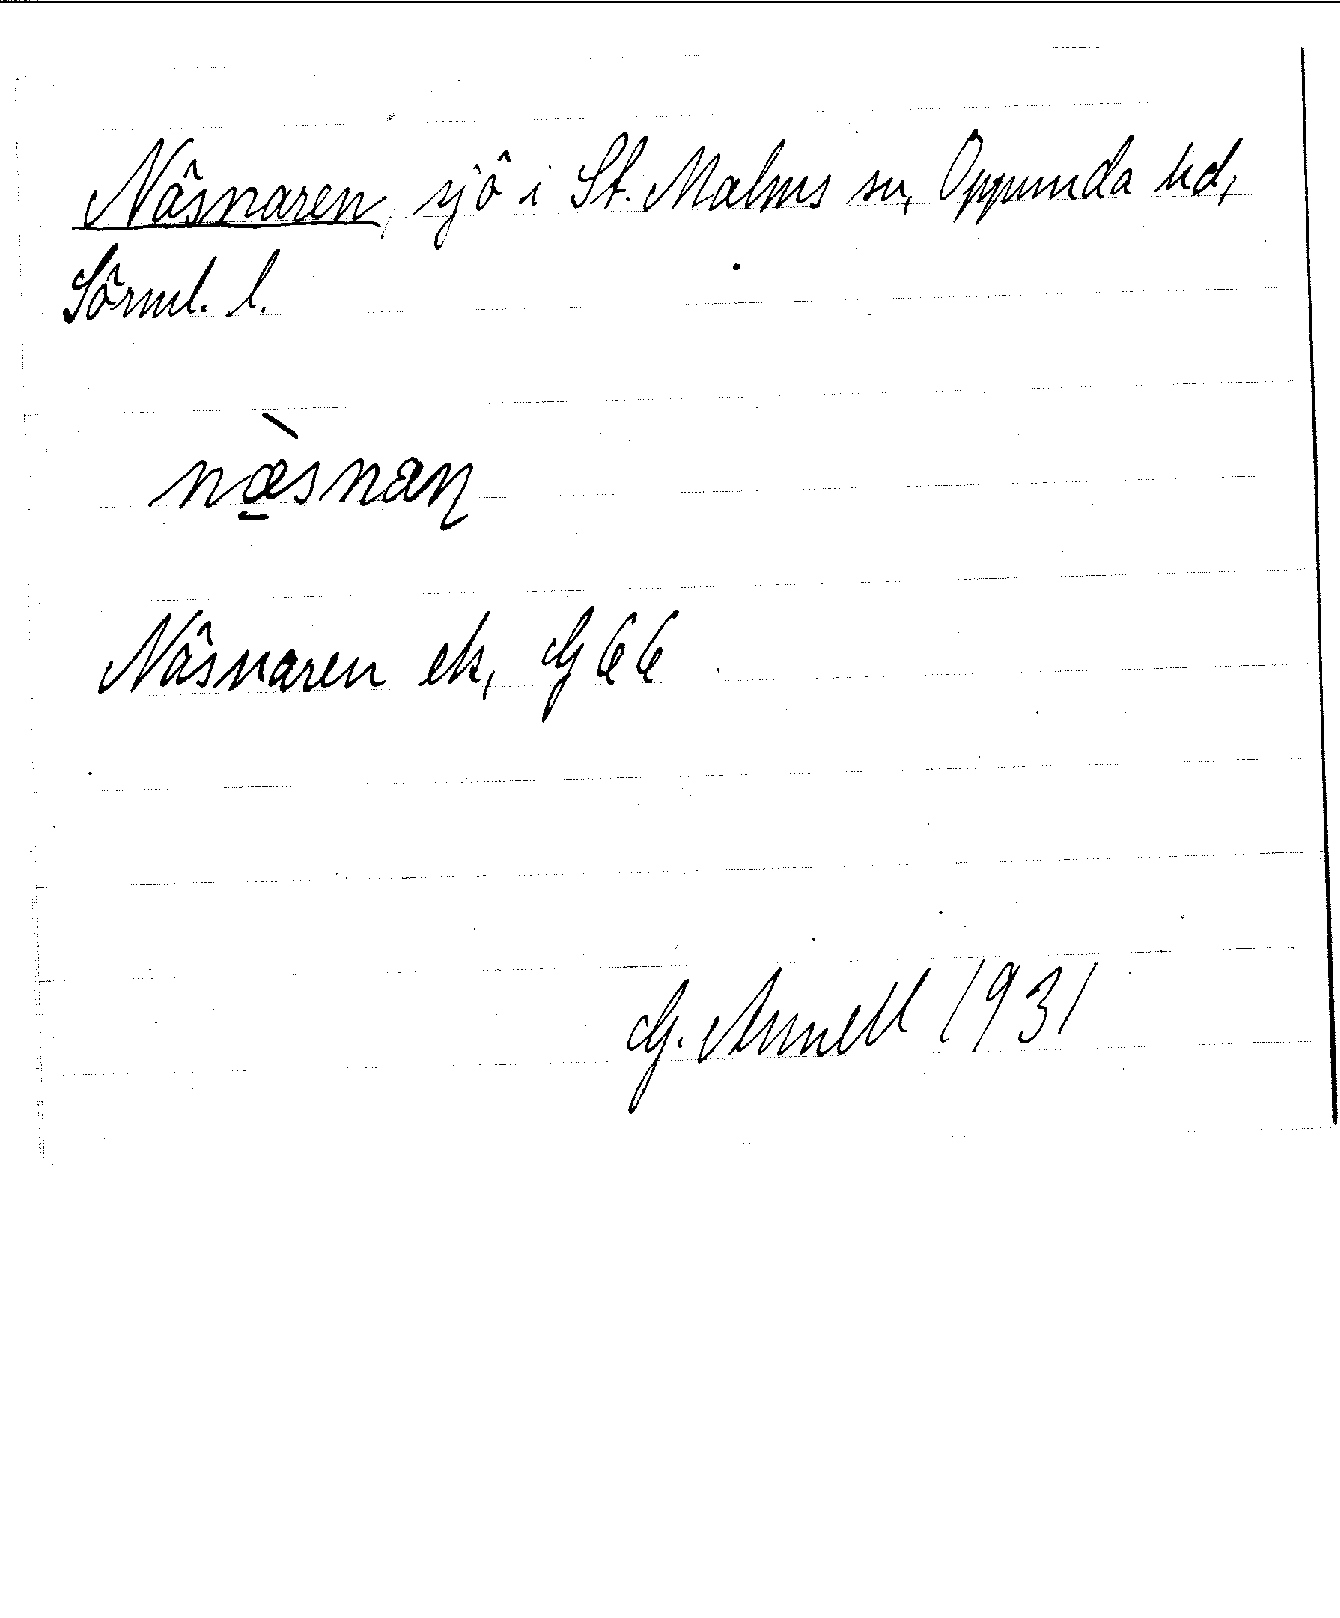 Näsnaren, sjö i St. Malms sn, Oppunda hd,
Sörml. l.
næ̠̀snaɳ
Näsnaren ek, G 66
G. Annell 1931